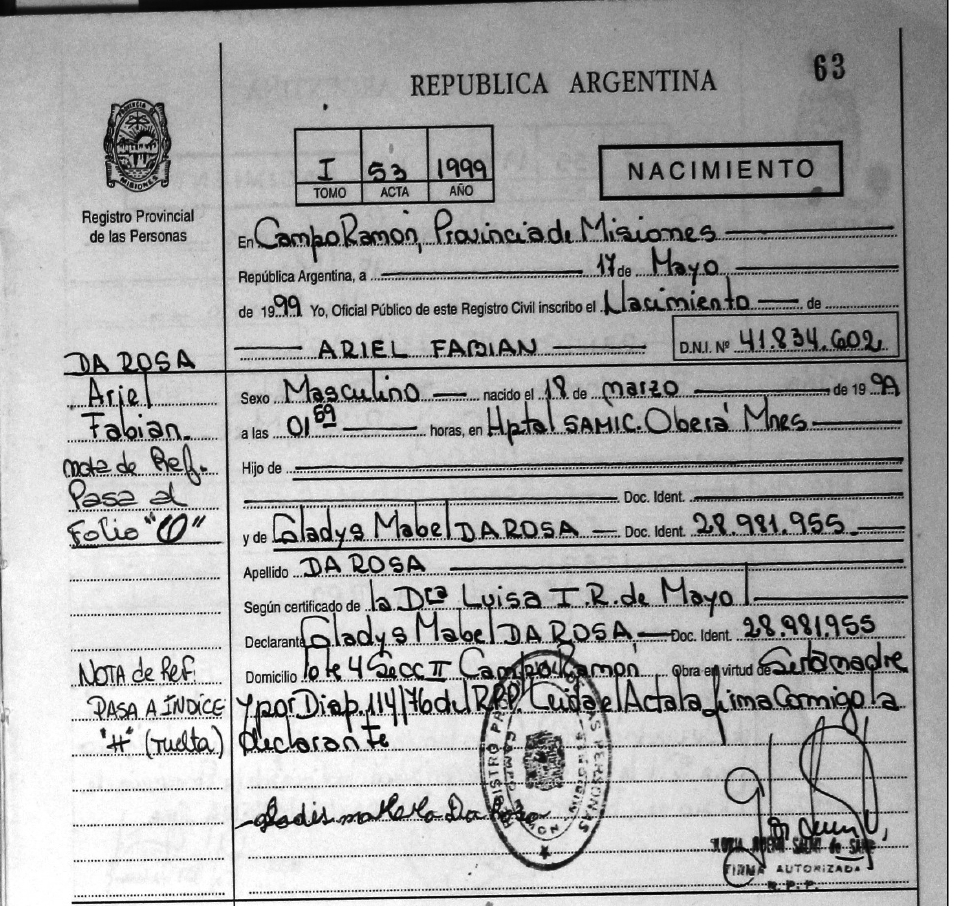 63
REPUBLICA ARGENTINA
PROVINCIA DE MISIONES
I 53 1999
TOMO ACTA AÑO
NACIMIENTO
Registro Provincial
de las Personas
En Campo Ramón, Provincia de Misiones
República Argentina, a 17 de Mayo
de 1999 Yo, Oficial Público de este Registro Civil inscribo el Nacimiento de
ARIEL FABIAN D.N.I. Nº 41.834.602
DA ROSA
Ariel
Fabian.
nota de Ref.
Pasa al
Folio "O"
Sexo Masculino nacido el 18 de marzo de 1999
a las 01 59 horas, en Hptal SAMIC. Oberá Mnes
Hijo de
Doc. Ident.
y de Gladys Mabel DA ROSA Doc. Ident. 28.981.955
Apellido DA ROSA
Según certificado de la Dra Luisa I.R. de Mayol
Declarante Gladys Mabel DA ROSA Doc. Ident. 28.981.955
Domicilio lote 4 Secc II Campo Ramón Obra en virtud de Ser la madre
NOTA de Ref.
PASA A ÍNDICE
"H" (vuelta)
y por Disp. 114/76 del RPP. Leída el Acta la firma Conmigo la
declarante
REGISTRO PROVINCIAL DE LAS PERSONAS
CAMPO RAMON
MISIONES
FIRMA AUTORIZADA
R.P.P.